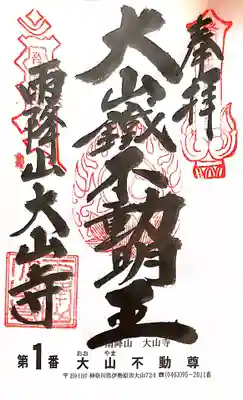 奉拝
大山鐵不動明王
雨降山大山寺
雨降山 大山寺
おお やま
第1番 大山不動尊
神奈川県伊勢原市大山724 ☎(0463)95-2011番